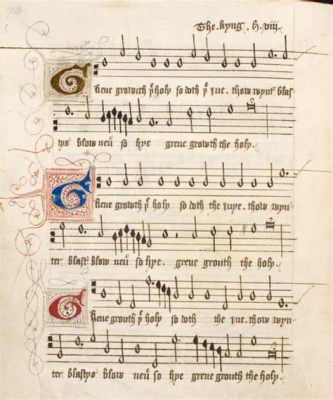 The kyng . h . viii .
Grene growith þe holy so doth þe iue . thow wynt' blas
tys blow neu' so hye grene growth the holy .
Grene growith þe holy so doth the iuye . thow wyn
ter blastys blow neu' so hye . grene growth the holy .
Grene growth þe holy so doth the iue . thow wyn
ter blastys blow neu' so hye grene growth the holy .